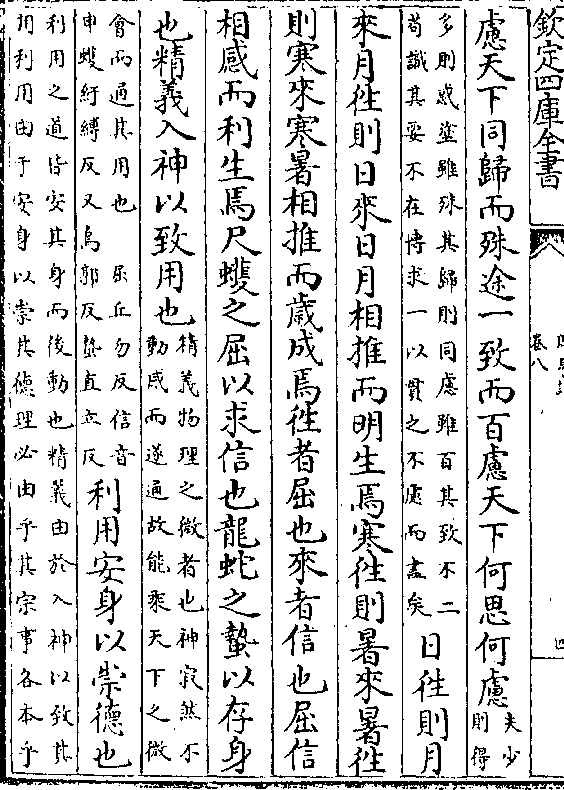 欽定四庫全書
卷八
四
慮天下同歸而殊途一致而百慮天下何思何慮
夫少
則得
多則惑塗雖殊其歸則同慮雖百其致不二
苟識其要不在博求一以貫之不慮而盡矣
日徃則月
來月徃則日來日月相推而明生焉寒徃則暑來暑徃
則寒來寒暑相推而歳成焉徃者屈也來者信也屈信
相感而利生焉尺蠖之屈以求信也龍蛇之蟄以存身
也精義入神以致用也
精義物理之微者也神寂然不
動感而遂通故能乘天下之微
會而通其用也　屈丘勿反信音
申蠖紆縛反又烏郭反蟄直立反
利用安身以崇德也
利用之道皆安其身而後動也精義由於入神以致其
用利用由乎安身以崇其德理必由乎其宗事各本乎